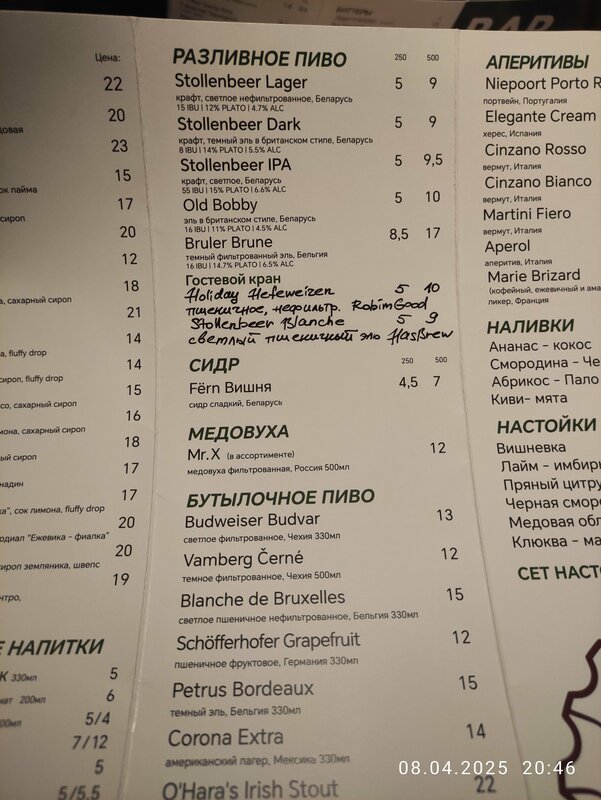 БИТТЕРЫ
BAR
Цена:
22
20
довая
23
15
ок лайма
17
сироп
20
12
18
а, сахарный сироп
21
14
а, fluffy drop
14
сироп, fluffy drop
15
со, сахарный сироп
16
мона, сахарный сироп
18
ый сироп
17
надин
17
ка", сок лимона, fluffy drop
20
рдиал "Ежевика - фиалка"
20
сироп земляника, швепс
19
нтро,
Е НАПИТКИ
К 330мл 5
200мл 6
00мл 5/4
7/12
5
5/5,5
РАЗЛИВНОЕ ПИВО 250 500
Stollenbeer Lager 5 9
крафт, светлое нефильтрованное, Беларусь
15 IBU | 12% PLATO | 4.7% ALC
Stollenbeer Dark 5 9
крафт, темный эль в британском стиле, Беларусь
8 IBU | 14% PLATO | 5.5% ALC
Stollenbeer IPA 5 9,5
крафт, светлое, Беларусь
55 IBU | 15% PLATO | 6.6% ALC
Old Bobby 5 10
эль в британском стиле, Беларусь
16 IBU | 11% PLATO | 4.5% ALC
Bruler Brune 8,5 17
темный фильтрованный эль, Бельгия
16 IBU | 14.7% PLATO | 6.5% ALC
Гостевой кран
Holiday Hefeweizen 5 10
пшеничное, нефильтр. RobimGood
Stollenbeer Blanche 5 9
светлый пшеничный эль HasBrew
СИДР 250 500
Fёrn Вишня 4,5 7
сидр сладкий, Беларусь
МЕДОВУХА
Mr.X (в ассортименте) 12
медовуха фильтрованная, Россия 500мл
БУТЫЛОЧНОЕ ПИВО
Budweiser Budvar 13
светлое фильтрованное, Чехия 330мл
Vamberg Černé 12
темное фильтрованное, Чехия 500мл
Blanche de Bruxelles 15
светлое пшеничное нефильтрованное, Бельгия 330мл
Schöfferhofer Grapefruit 12
пшеничное фруктовое, Германия 330мл
Petrus Bordeaux 15
темный эль, Бельгия 330мл
Corona Extra 14
американский лагер, Мексика 330мл
O'Hara's Irish Stout 22
АПЕРИТИВЫ
Niepoort Porto R
портвейн, Португалия
Elegante Cream
херес, Испания
Cinzano Rosso
вермут, Италия
Cinzano Bianco
вермут, Италия
Martini Fiero
вермут, Италия
Aperol
аперитив, Италия
Marie Brizard
(кофейный, ежевичный и ама
ликер, Франция
НАЛИВКИ
Ананас - кокос
Смородина - Че
Абрикос - Пало
Киви- мята
НАСТОЙКИ
Вишневка
Лайм - имбирь
Пряный цитру
Черная сморо
Медовая обл
Клюква - ма
СЕТ НАСТО
08.04.2025 20:46